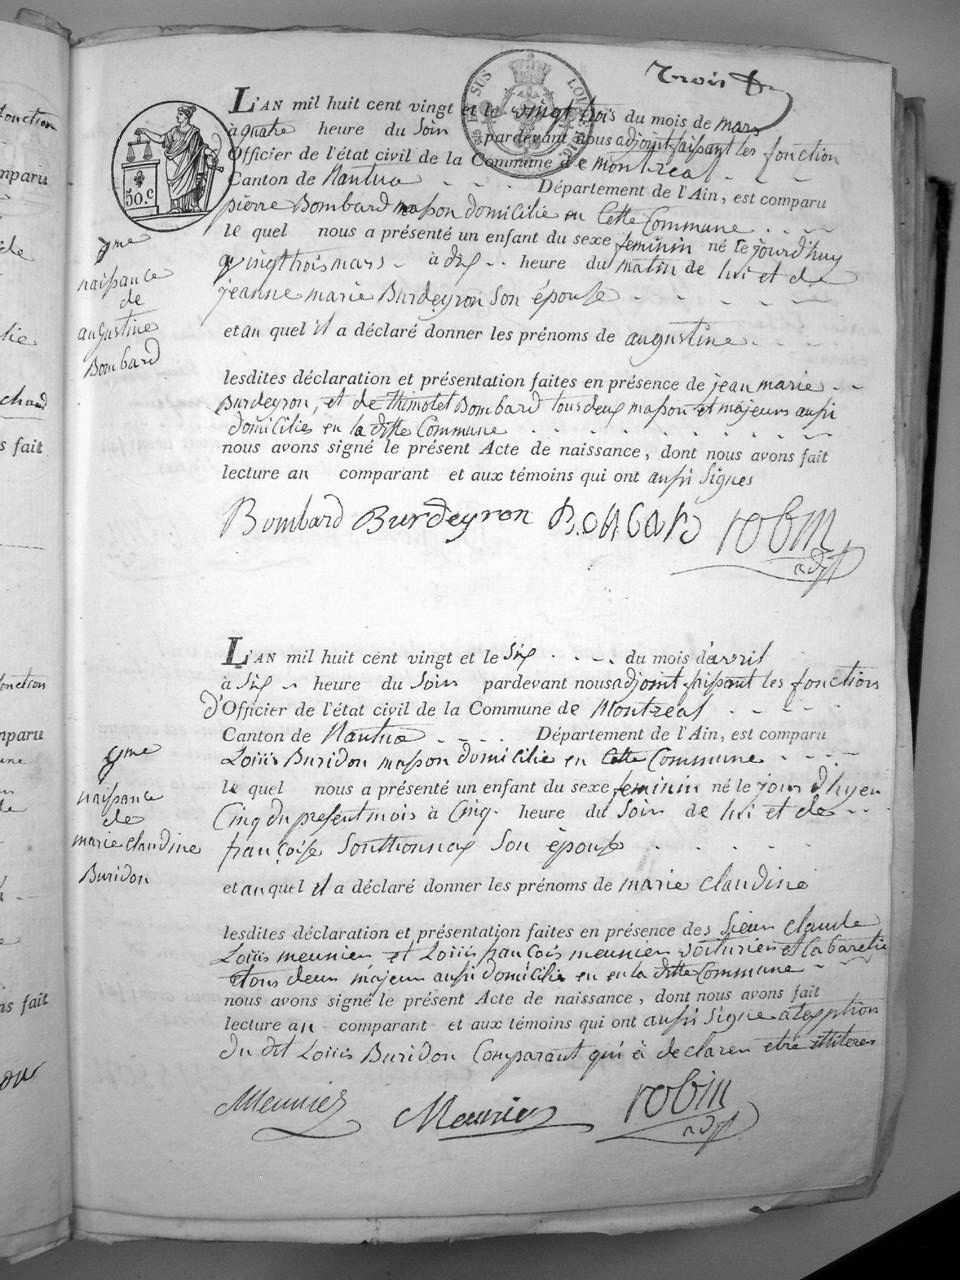 Trois
50.c
L'AN mil huit cent vingt et le vingt trois du mois de mars
à quatre heure du Soir pardevant nous adjoint faisant les fonction
Officier de l'état civil de la Commune de montréal
Canton de Nantua Département de l'Ain, est comparu
pierre Bombard masson domicilié en Cette Commune
le quel nous a présenté un enfant du sexe feminin né le jourd'huy
vingt trois mars à dix heure du matin de lui et de
jeanne marie Burdeyron Son épouse
et au quel il a déclaré donner les prénoms de augustine
lesdites déclaration et présentation faites en présence de jean marie
Burdeyron, et de themolet Bombard tous deux masson et majeurs aussi
domicilies en la ditte Commune
nous avons signé le présent Acte de naissance, dont nous avons fait
lecture au comparant et aux témoins qui ont aussi Signes
naissance
de
augustine
Bombard
Bombard Burdeyron robin
adjt
L'AN mil huit cent vingt et le Six du mois d'avril
à Six heure du Soir pardevant nous adjoint faisant les fonctions
d'Officier de l'état civil de la Commune de Montréal
Canton de Nantua Département de l'Ain, est comparu
Louis Buridon masson domicilié en Cette Commune
le quel nous a présenté un enfant du sexe feminin né le jour d'hyer
Cinq du present mois à Cinq heure du Soir de lui et de
françoise Southonnax Son épouse
et au quel il a déclaré donner les prénoms de marie claudine
lesdites déclaration et présentation faites en présence des Sieur Claude
Louis meunier et Louis françois meunier voiturier et Cabaretie
et tous deux majeur aussi domicilié en la ditte Commune
nous avons signé le présent Acte de naissance, dont nous avons fait
lecture au comparant et aux témoins qui ont aussi Signe a lexeption
du dit Louis Buridon Comparant qui à declaren etre illiteres
9me
naissance
de
marie claudine
Buridon
Meunier Meunier robin
adjt